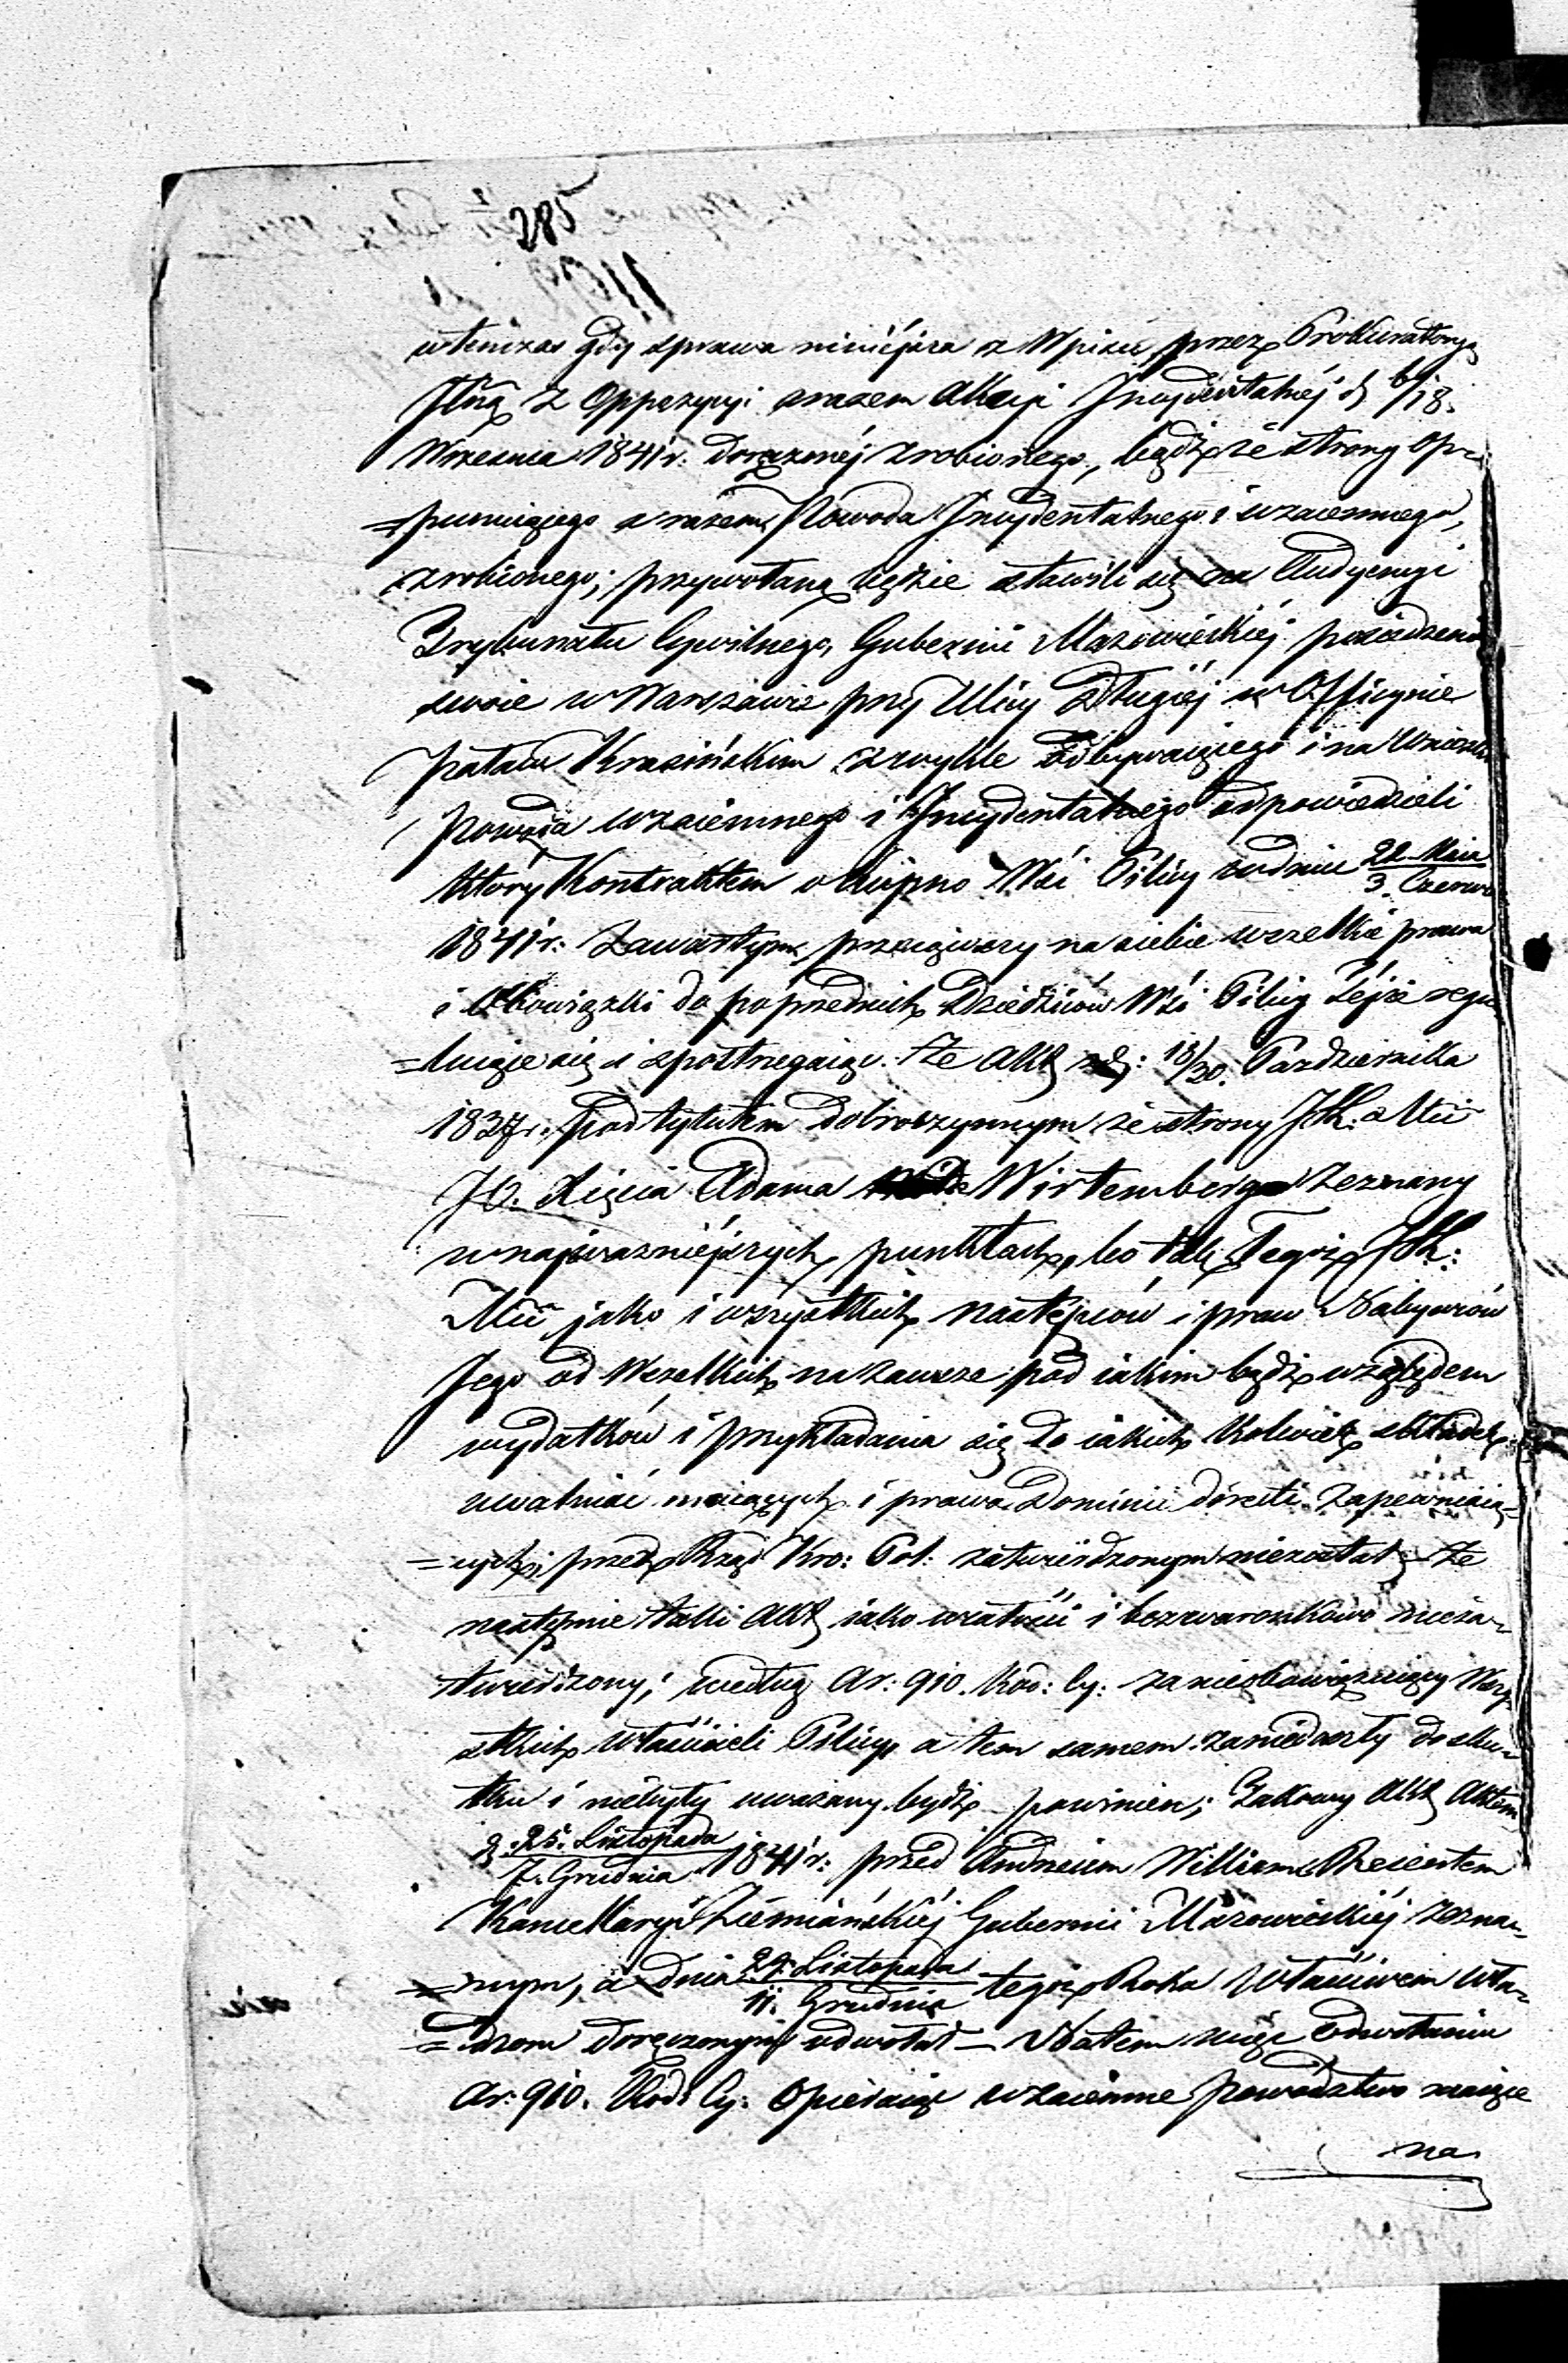 285
wtenczas gdy sprawa niniéjsza z Wpisu przez Prokuratoryą
Jlną z Oppozycyi a razem Akcyi Incydentalnéj d 6/18.
Września 1841 r: doręczonéj zrobionego, bądź ze strony Op=
=punuiącego a razem Powoda Incydentalnego i wzaiemnego,
zrobionego; przywołaną będzie stawili się na Audyencyi
Trybunału Cywilnego Gubernii Mazowieckiéj posiedzenia
swoie w Warszawie przy Ulicy Długiéj w Officynie
pałacu Krasińskim zwykle odbywaiącego i na Wnioski
Powoda wzaiemnego i Incydentalnego odpowiedzieli
który Kontraktem o kupno Wsi Pilicy w dniu 22 Maia
3. Czerwca
1841 r: zawartym, przeiąwszy na siebie wszelkie prawa
i obowiązki do poprzednich Dziedziców Wsi Pilicy téjże regu=
=luiące się i spostrzegaiąc. że Akt : 18/30. Pazdziernika
1837 r. pod tytułem dobroczynnym ze strony
JO. Xięcia Adama Wirtemberg zeznany
w najważniéjszych punktach, bo tak Tegoż
jako i wszystkich następców i praw Nabywców
Jego od Wszelkich na zawsze pod iakim bądź względem
wydatków i przykładania się do iakich kolwiek składek
uwalniać maiących i prawa Dominii directi zapewniaią=
=cych, przez Rząd Kro: Pol: zatwierdzonym niezostał; że
następnie taki Akt iako w całości i bezwarunkowo nieza=
twierdzony, według Ar: 910. Kod: Cy: za nieobowiązuiący Wszy=
stkich właścicieli Pilicy a tem samem za niedoszły do sku=
tku i niebyły uważany bydź powinien; Takowy Akt Aktem
d. 25. Listopada
7. Grudnia 1841 r: przed Andrzeiem Willism Reientem
Kancellaryi Ziemiańskiéj Gubernii Mazowieckiéj zezna=
=nym, a dnia 29. Listopada
11. Grudnia tegoż Roku Właściwem Wła=
=dzom doręczonym odwołał — Na tem więc odwołaniu
Ar: 910. Kod: Cy: opieraiąc wzaiemne powództwo maiące
na